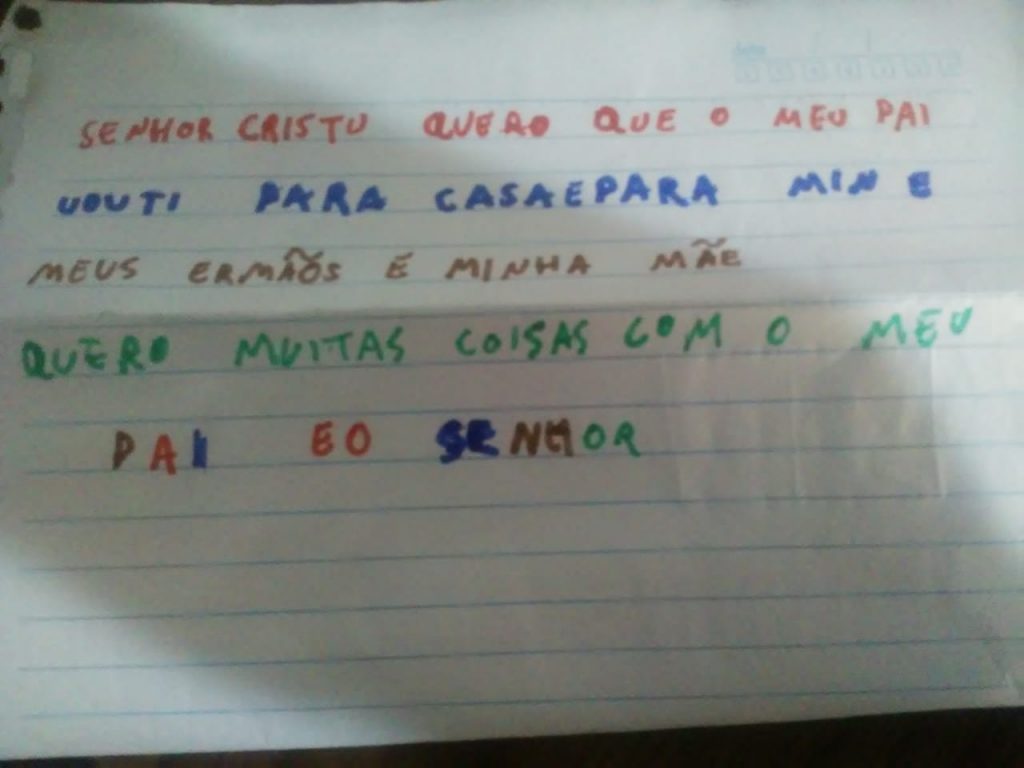 SENHOR CRISTU QUERO QUE O MEU PAI
VOUTI PARA CASAEPARA MIN E
MEUS ERMÃOS E MINHA MÃE
QUERO MUITAS COISAS COM O MEU
PAI EO SENHOR